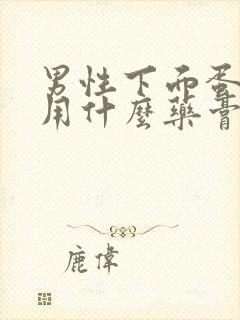 男性下面蛋
用什麼藥膏
鹿偉